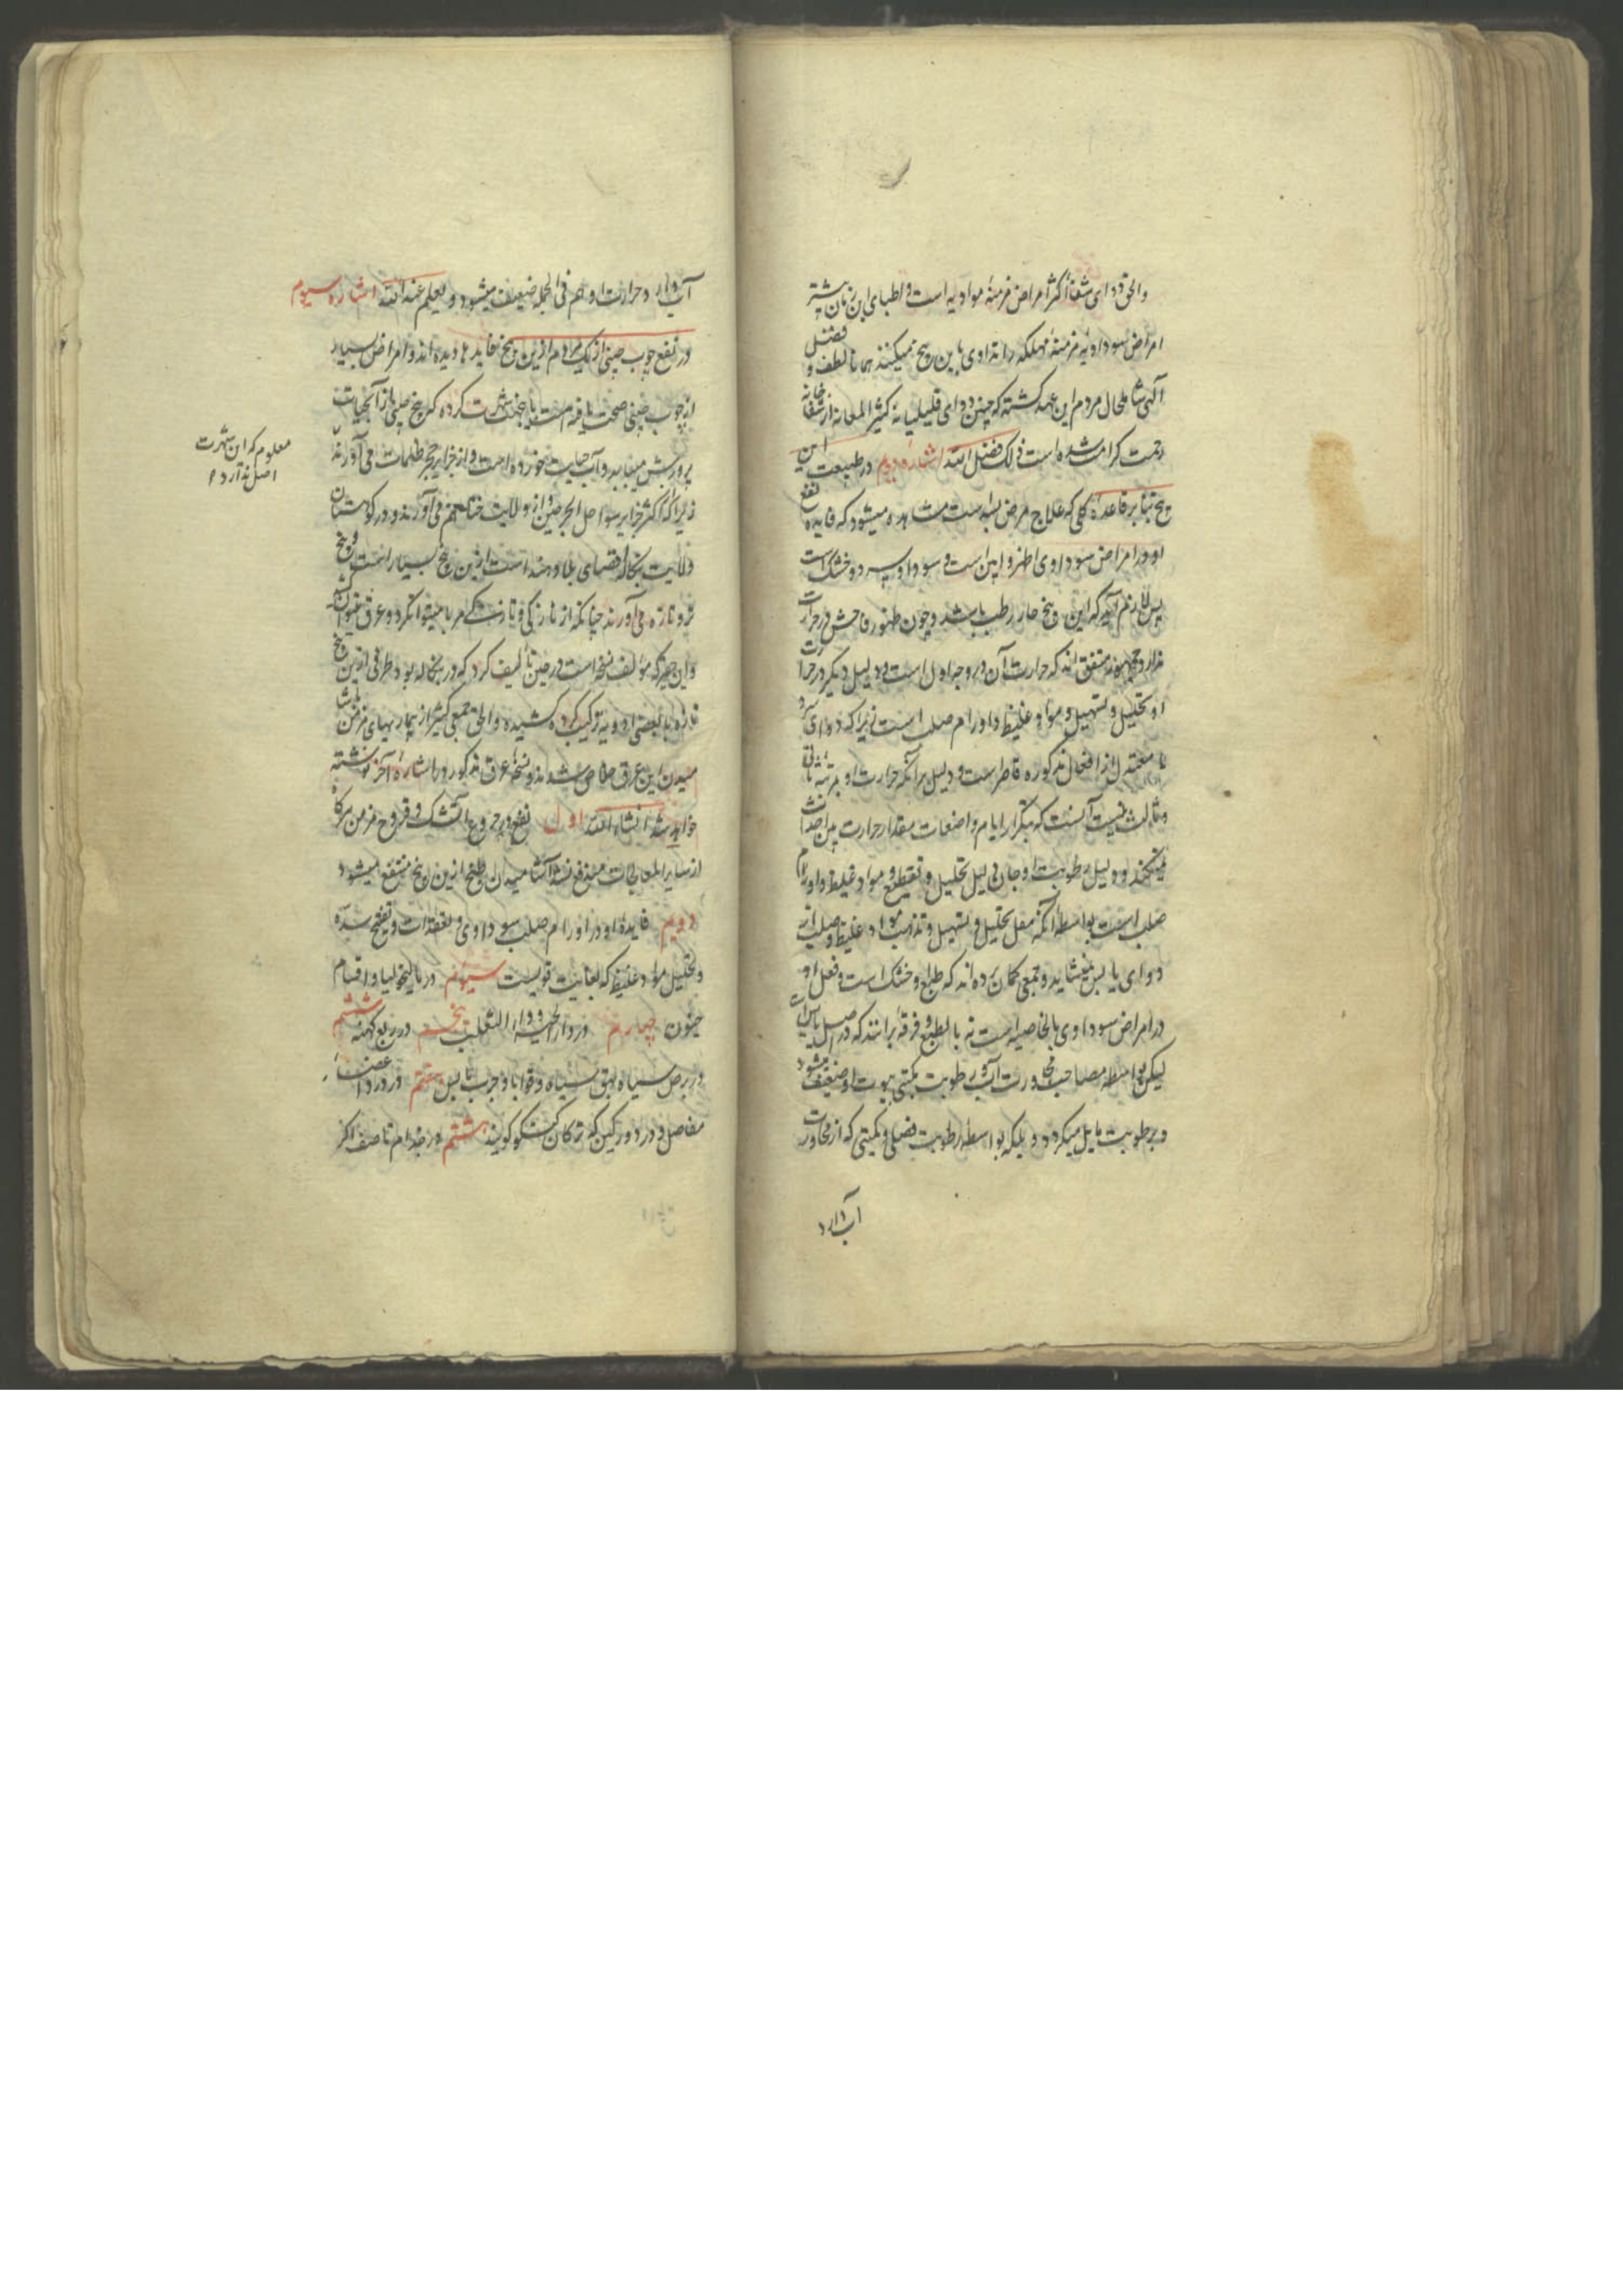 والحق دوای شفا اکثر امراض مزمنهٔ موادیه است و اطبای این زمان بیشتر
امراض سوداویهٔ مزمنهٔ مهلکه را تداوی باین بیخ میکنند همانا لطف و فضل
الهی شامل حال مردم این عهد کشته که چنین دوای کثیر المعانه از شفاخانه
رحمت کرامت شده است ذلک فضل الله اشاره دویم در طبیعت این
بیخ بنابر قاعدهٔ کلی که علاج مرض بضد است مشاهده میشود که فایده و نفع
او در امراض سوداوی اظهر و ابین است و سودا سرد و خشک است
پس لازم آید که این بیخ حار رطب باشد و چون ظهور فاحش در حرارت
ندارد همه متفق اند که حرارت آن در درجه اول است و دلیل دیگر در حرارت
او تحلیل و تسهیل مواد غلیظ و اورام صلب است زیرا که دوای
تا معتدل از افعال مذکوره قاصر است و دلیل برآنکه حرارت او بمرتبه ثانی
و ثالث نیست آنست که بتکرار ایام و اضعاف مقدار حرارت بین احداث
نمیکند و دلیل رطوبت او تحلیل و تقطیع مواد غلیظ و اورام
صلب است بواسطه آنکه فعل تحلیل و تسهیل و تذویب مواد غلیظ و صلب از
دوای یابس نمیشاید و جمعی کمان برده اند که طبع او خشک است و فعل او
در امراض سوداوی بالخاصیه است نه بالطبع و فرقه برانند که در اصل یابس است
لیکن بواسطه مصاحبت و مجاورت آب و رطوبت یبوست او ضعیف میشود
و برطوبت مایل میکردد بلکه بواسطه رطوبت فضلی که از مجاورت
آب دارد
آب دارد و حرارت او هم فی الجمله ضعیف میشود و العلم عند الله اشاره سیوم
در نفع چوب چینی از بسکه مردم ازین بیخ فایده ها دیده اند و امراض بسیار
از چوب چینی صحت یافته است باینجهت شهرت کرده که بیخ چینی از آبحیات
پرورش مییابد و آب حیات خورده است و از جزایر بحر ظلمات می آورند
زیرا که اکثر جزایر سواحل البحر چین و از ولایت ختا هم می آورند و در کوهستان
ولایت بنکاله اقصای بلاد هند است ازین بیخ بسیار است و بیخ
تر و تازه می آورند چنانکه از تازگی و تازه مربا میتوان کرد و عرق میتوان کشید
و این حقیر که مؤلف نسخه است در حین تألیف کرد که در بنکاله بود ظرفی ازین بیخ
تازه با بعضی ادویه ترکیب کرده کشیده و الحق جمعی کثیر از بیماریهای مزمن
باشامیدن این عرق خلاص شدند و نسخهٔ عرق مذکور در اشارهٔ آخر نوشته
خواهد شد انشاء الله اول نفع در جروح آتشک و قروح مزمن هرگاه
از سایر المعالجات مندفع نشد آشامیدن طبخ ازین بیخ منتفع میشود
دویم فایدهٔ او در اورام صلب سوداوی و عقدات و تفتیح سده
و تحلیل مواد غلیظ که بغایت قویست سیوم در مالیخولیا و اقسام
جنون چهارم در داء الحیه و داء الثعلب پنجم در ربع کهنه ششم
در برص سیاه و بهق سیاه و قوابا و جرب یابس هفتم در درد اعضاء
مفاصل و درد ورکین که ترکان کویند هشتم در جذام تا صف اکر
معلوم که این شهرت
اصل ندارد م